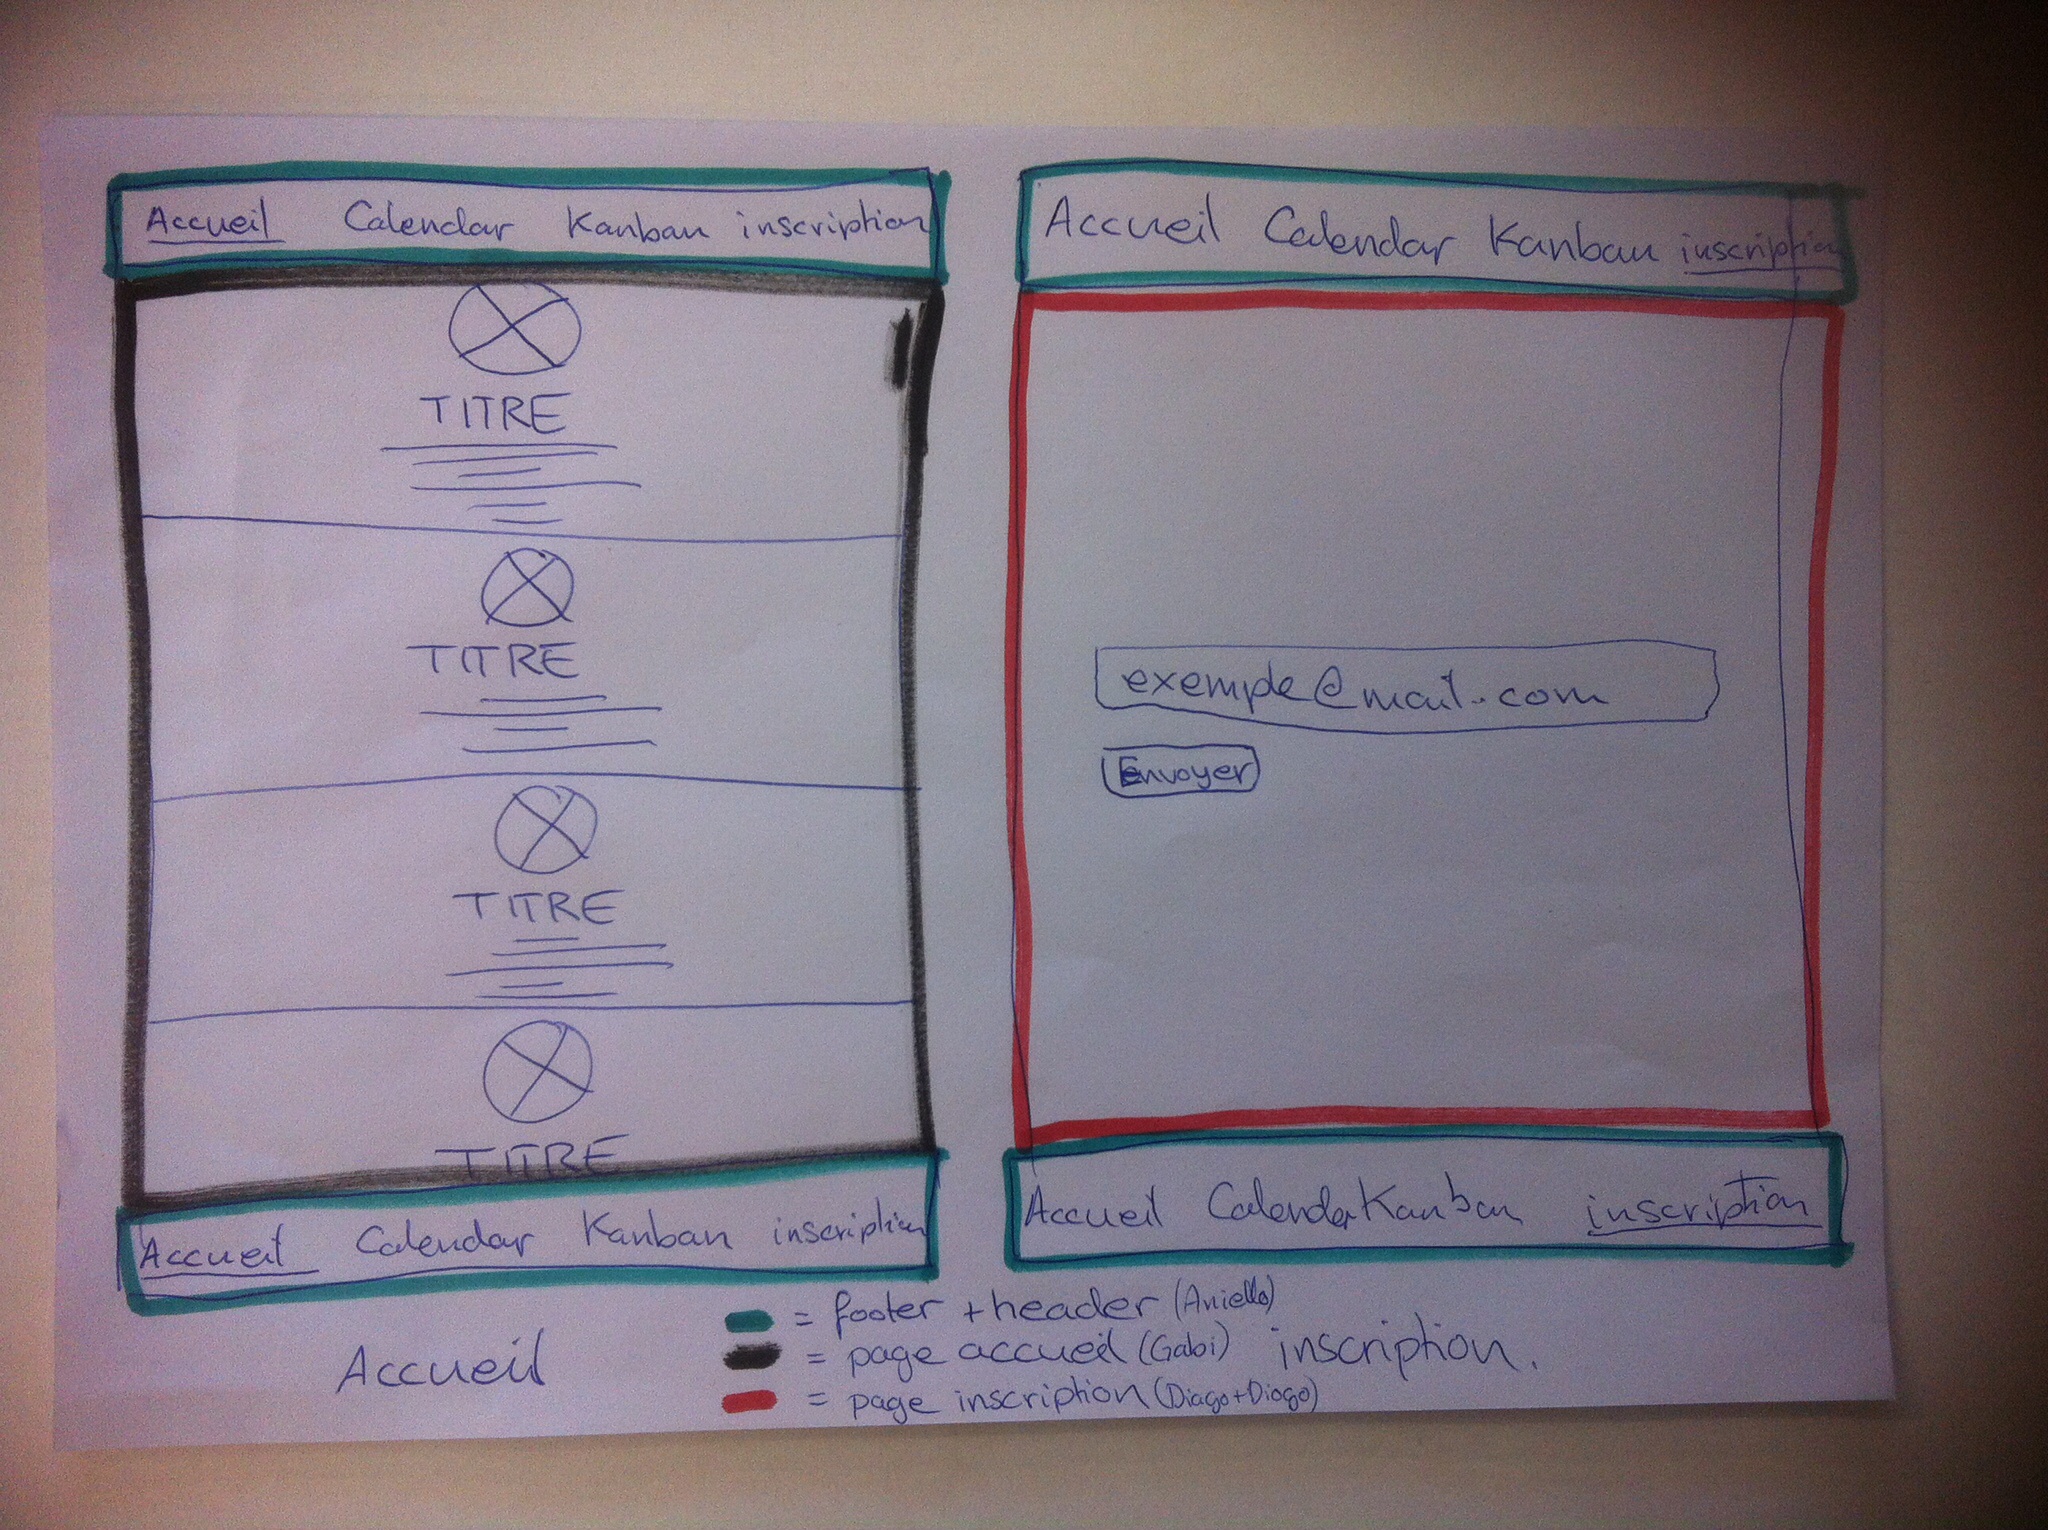 Accueil Calendar Kanban inscription
TITRE
TITRE
TITRE
TITRE
Accueil Calendar Kanban inscription
Accueil
Accueil Calendar Kanban inscription
exemple@mail.com
Envoyer
Accueil Calendar Kanban inscription
inscription.
= footer + header (Aniello)
= page accueil (Gabi)
= page inscription (Diago+Diogo)